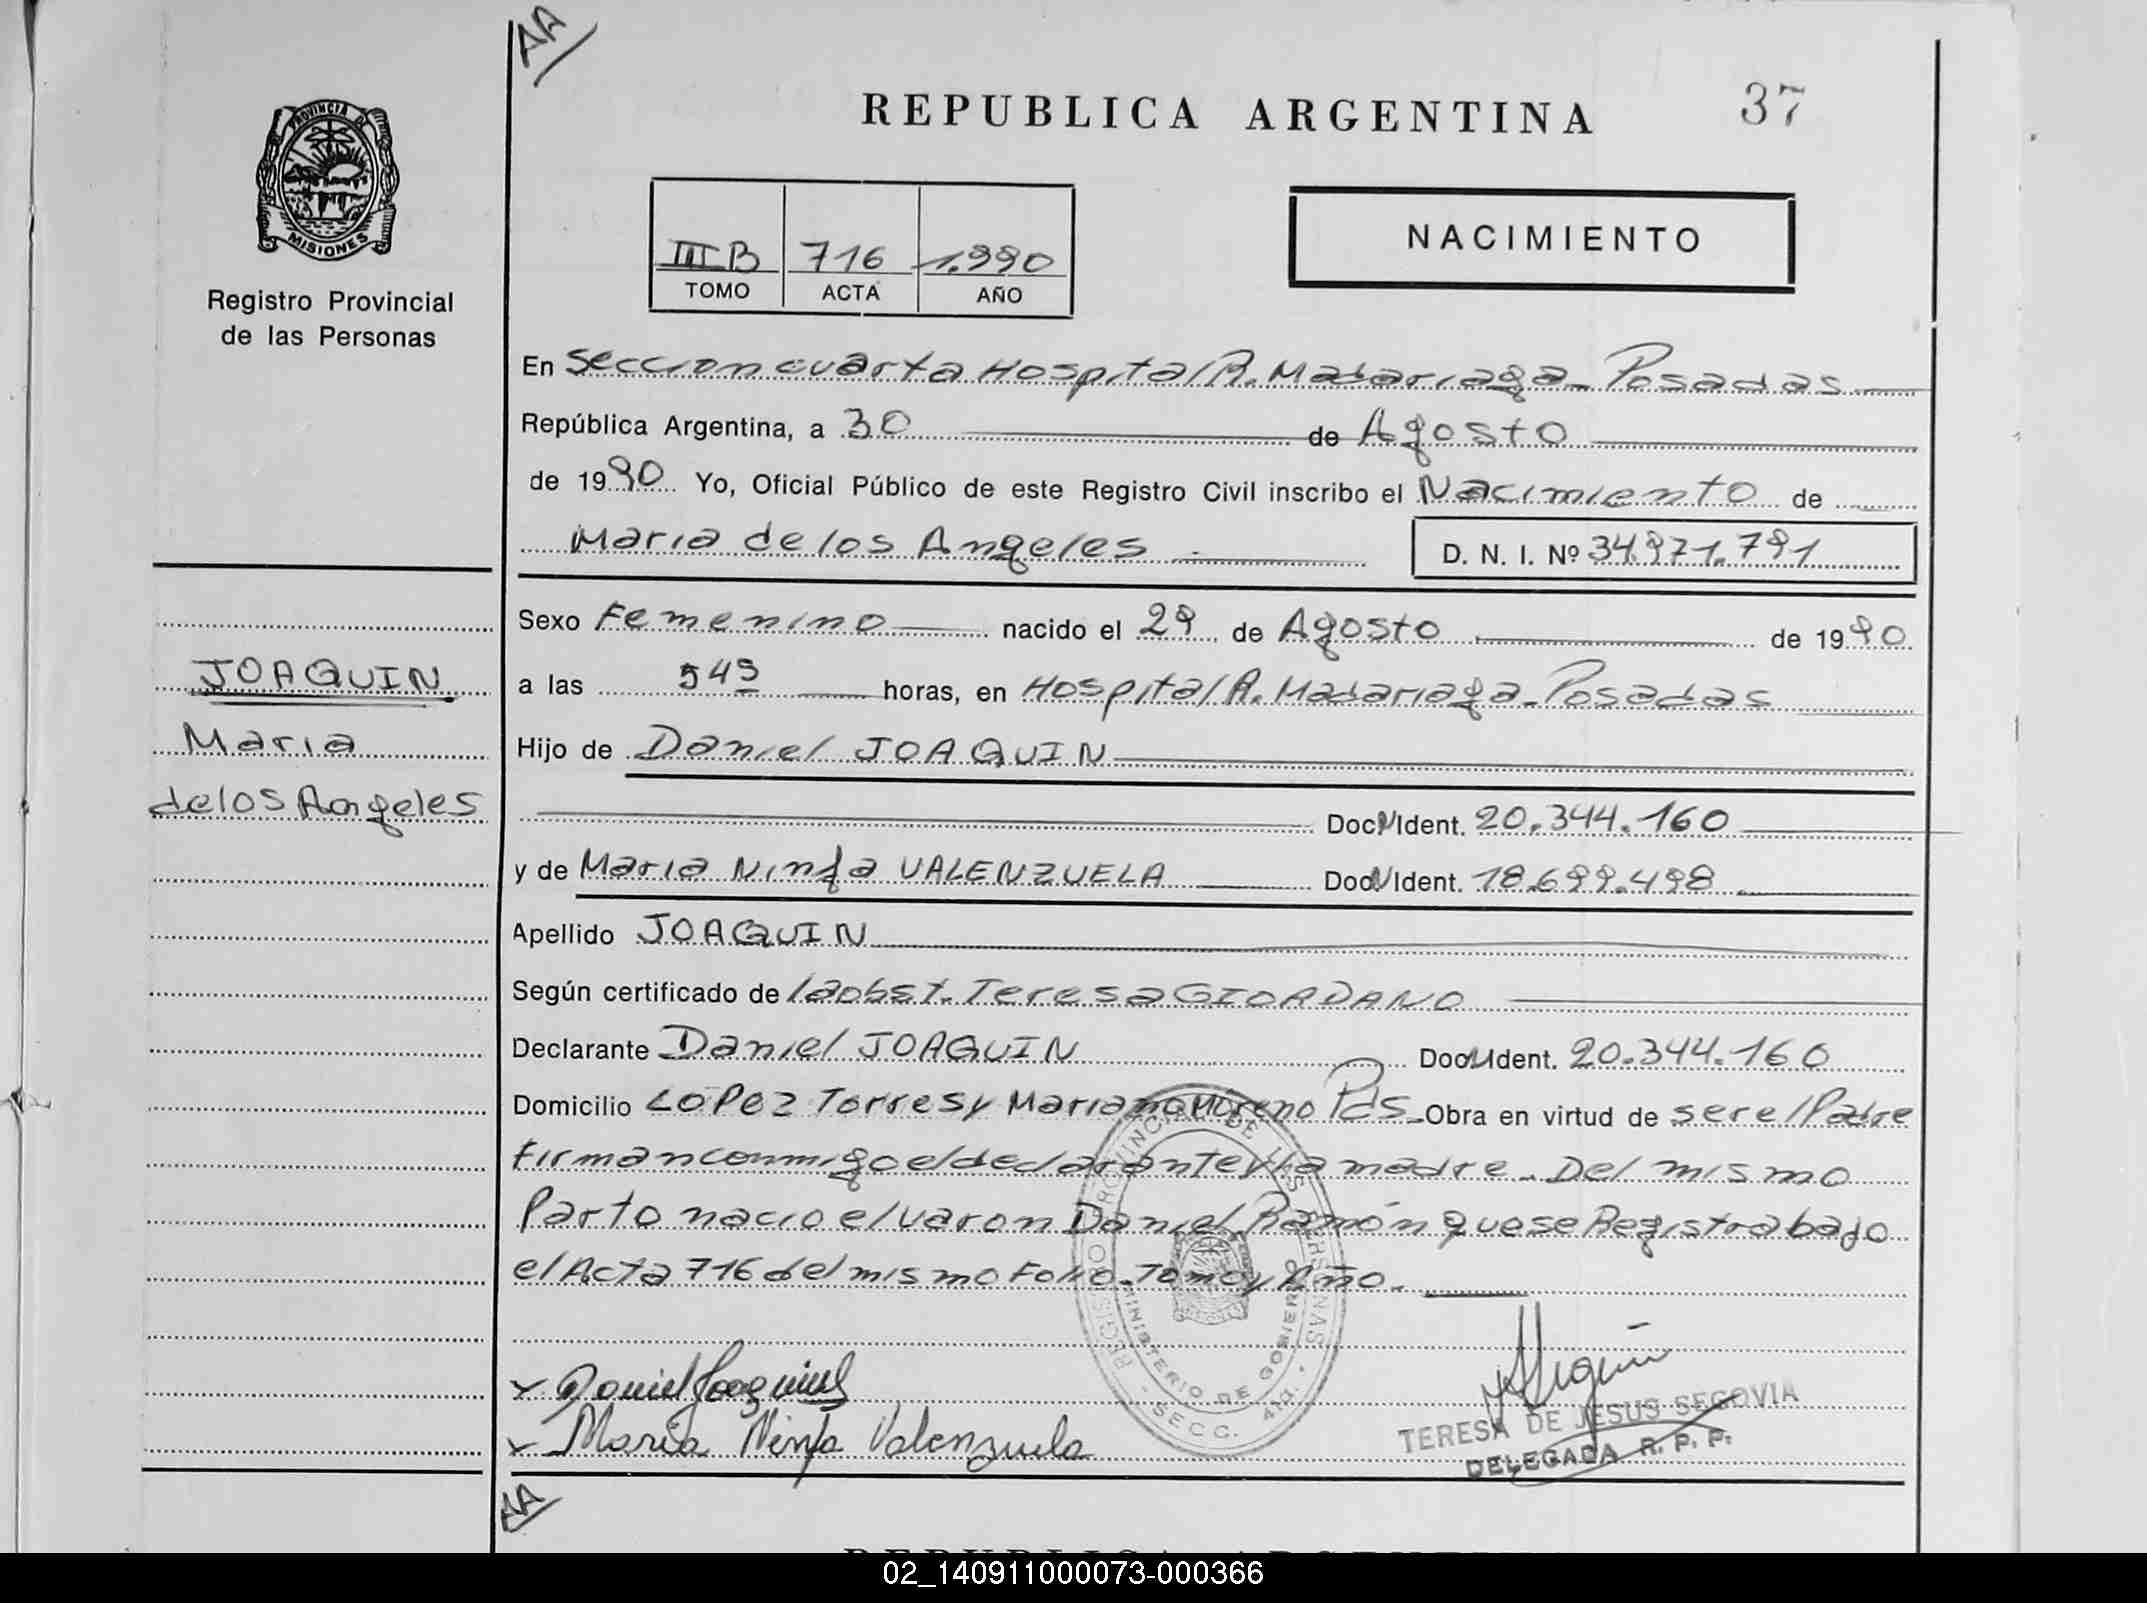 AA
REPUBLICA ARGENTINA
37
PROVINCIA DE
MISIONES
Registro Provincial
de las Personas
III B 716 1.990
TOMO ACTA AÑO
NACIMIENTO
En Seccion cuarta Hospital R. Madariaga - Posadas
República Argentina, a 30 de Agosto
de 1990 Yo, Oficial Público de este Registro Civil inscribo el Nacimiento de
Maria de los Angeles
D. N. I. Nº 34.971.791
Sexo Femenino nacido el 29 de Agosto de 1990
a las 545 horas, en Hospital R. Madariaga - Posadas
Hijo de Daniel JOAQUIN
Doc N Ident. 20.344.160
y de Maria Ninfa VALENZUELA Doc N Ident. 18.699.498
Apellido JOAQUIN
Según certificado de la obst. Teresa GIORDANO
Declarante Daniel JOAQUIN Doc N Ident. 20.344.160
Domicilio Lopez Torres y Mariano Moreno Pds. Obra en virtud de ser el Padre
Firman conmigo el declarante y la madre - Del mismo
Parto nacio el varon Daniel Ramón que se Registro bajo
el Acta 716 del mismo Folio - Tomo y Año.
JOAQUIN
Maria
de los Angeles
REGISTRO PROVINCIAL DE LAS PERSONAS
MINISTERIO DE GOBIERNO
SECC. 4ta.
Daniel Joaquin
Maria Ninfa Valenzuela
TERESA DE JESUS SEGOVIA
DELEGADA R. P. P.
AA
REPUBLICA ARGENTINA
02_140911000073-000366